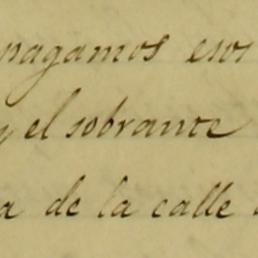 pagamos esos
y el sobrante
a de la calle